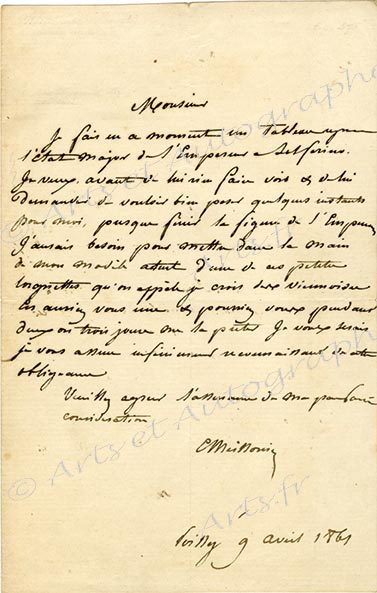 Monsieur
Je fais en ce moment un tableau ayant
l'état major de l'Empereur a Solferino.
Je veux avant de lui rien faire voir & de lui
demander de vouloir bien poser quelques instants
pour moi, presque finir la figure de l'Empereur
J'aurais besoin pour mettre dans la main
de mon modèle d'une de ces petites
lorgnettes qu'on appelle je crois des viennoises
En auriez vous une & pourriez vous pendant
deux ou trois jours me la prêter Je vous serais
je vous assure infiniment reconnaissant de cette
obligeance
Veuillez agréer l'assurance de ma parfaite
considération
EMeissonier
Poissy 9 avril 1861
© Arts et Autographes
Arts.fr